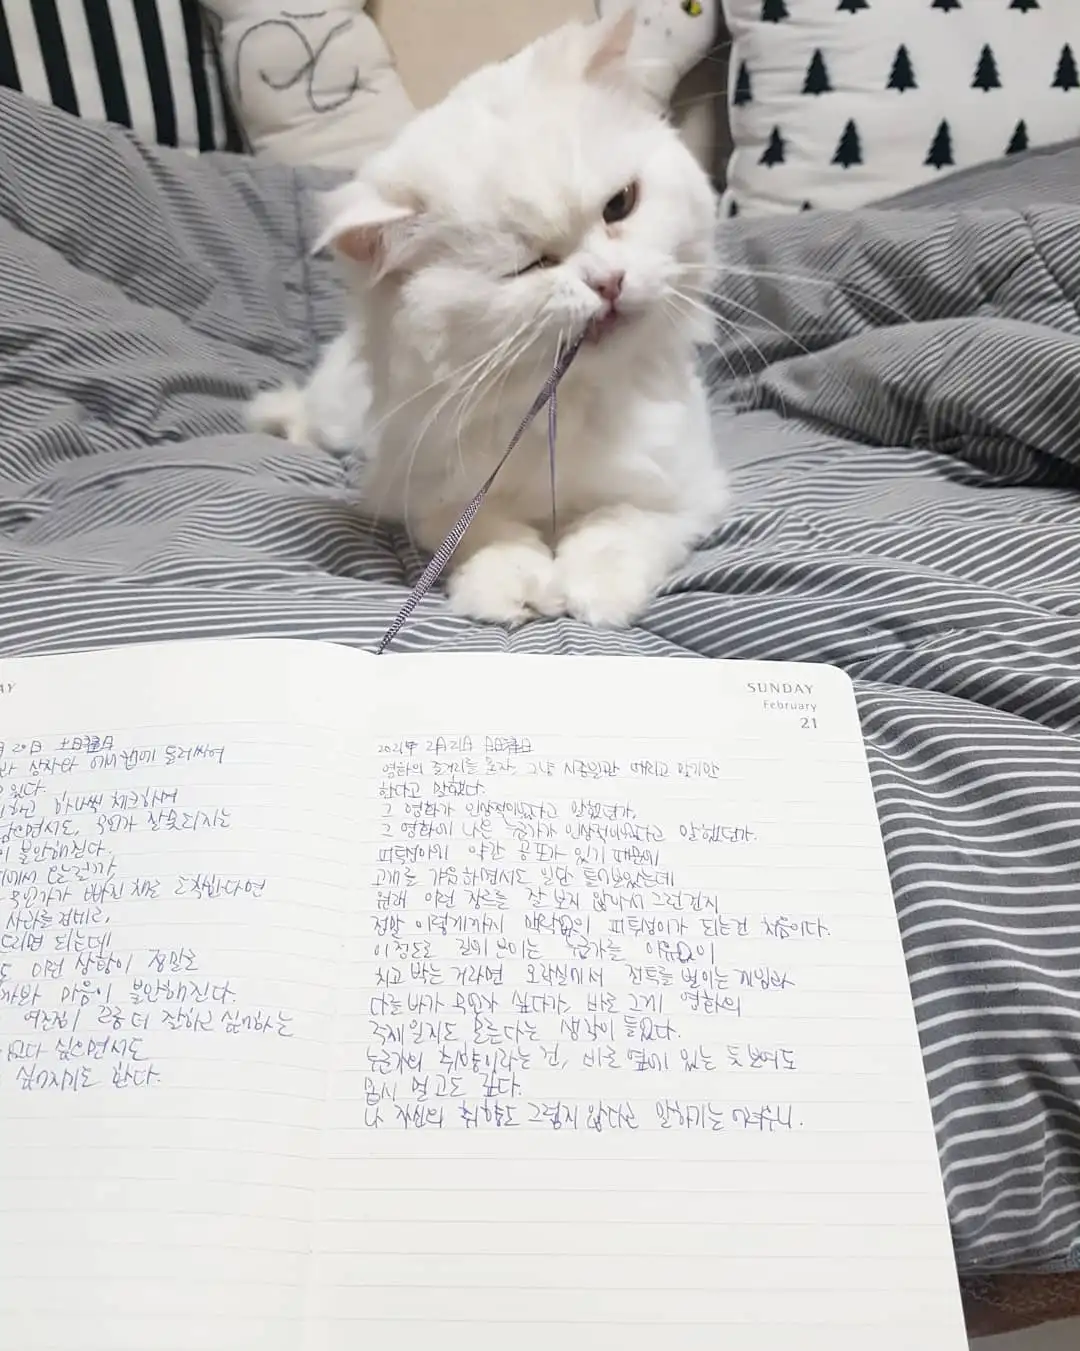 AY
20日 土日
상자와 에 둘러싸여
있다.
하나씩 체크하며
으면서도, 뭔가 잘못되지는
불안해진다.
에서
뭔가가 빠진 채로 도착한다면
사라
드리면 되는데
이런 상황이 정말로
마음이 불안해진다.
여전히 더 잘하고 싶어하는
싶으면서도
싶어지기도 한다.
SUNDAY
February
21
2021年 2月 21日 日曜日
영화의 줄거리를 묻자, 그냥 시종일관 때리고 맞기만
한다고 말했다.
그 영화가 인상적이었다고 말했던가,
그 영화에 나온 누군가가 인상적이었다고 말했던가.
피투성이에 약간 공포가 있기 때문에
고개를 갸웃하면서도 일단 틀어보았는데
원래 이런 장르를 잘 보지 않아서 그런건지
정말 이렇게까지 맥락없이 피투성이가 되는건 처음이다.
이 정도로 보이는 누군가를 이유없이
치고 박는 거라면 오락실에서 전투를 벌이는 게임과
다를바가 뭔가 싶다가, 바로 그게 영화의
주제일지도 모른다는 생각이 들었다.
누군가의 취향이라는 건, 바로 옆에 있는 듯 보여도
몹시 멀고도 깊다.
나 자신의 취향도 그렇지 않다고 말하기는 어려우니.